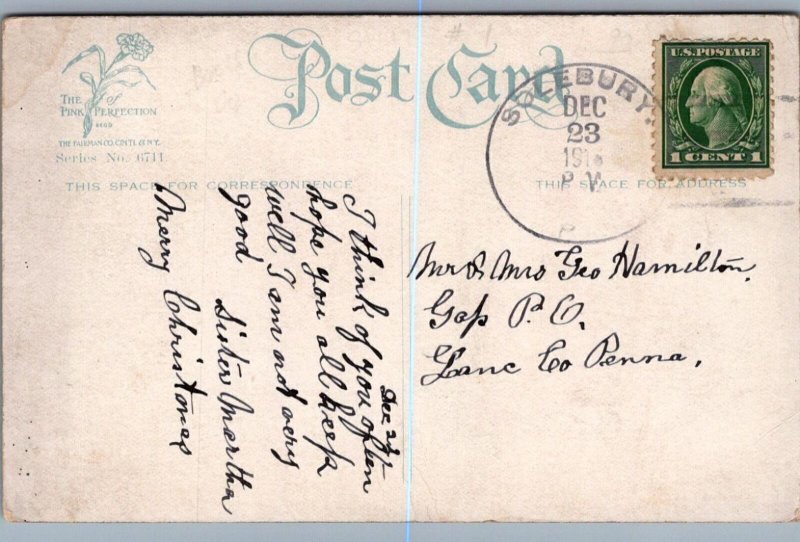 Post Card
THE
PINK PERFECTION
THE FAIRMAN CO. CINTI. & N.Y.
Series No. 6711
THIS SPACE FOR CORRESPONDENCE
THIS SPACE FOR ADDRESS
U.S. POSTAGE
1 CENT 1
SOLEBURY,
DEC
23
P M
Dec 23/-
I think of you often
hope you all keep
well I am not very
good Sister Martha
Merry Christmas
Mr & Mrs Geo Hamilton,
Gap P.O.
Lanc Co Penna,